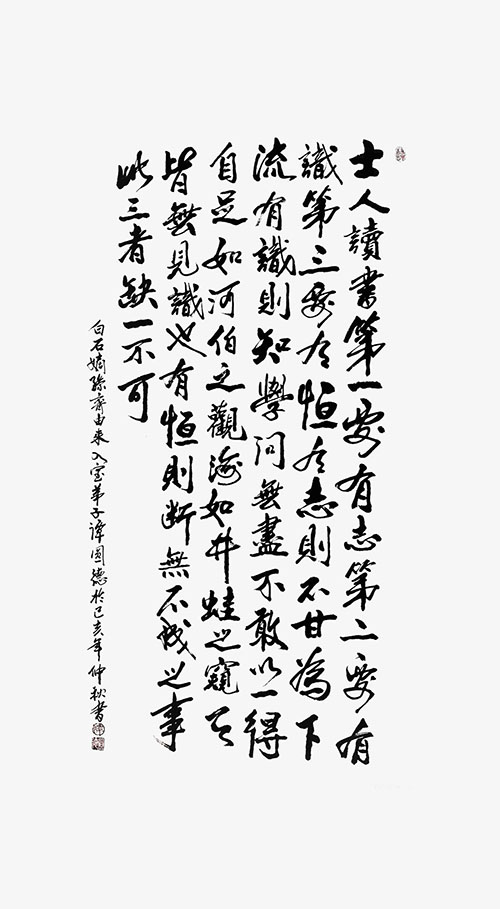 士人讀書第一要有志第二要有
識第三要有恒有志則不甘為下
流有識則知學問無盡不敢以一得
自足如河伯之觀海如井蛙之窺天
皆無見識也有恒則斷無不成之事
此三者缺一不可
白石嫡孫齊由來入室弟子譚國德於己亥年仲秋書